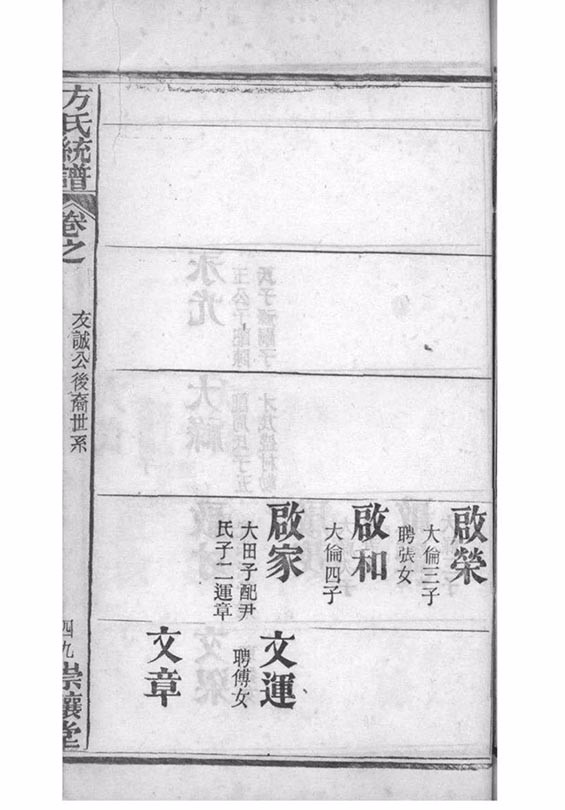 啟榮
大倫三子
聘張女
啟和
大倫四子
啟家
大田子配尹
氏子二運章
文運
聘傅女
文章
方氏統譜
卷之
友誠公後裔世系
四九
崇讓堂